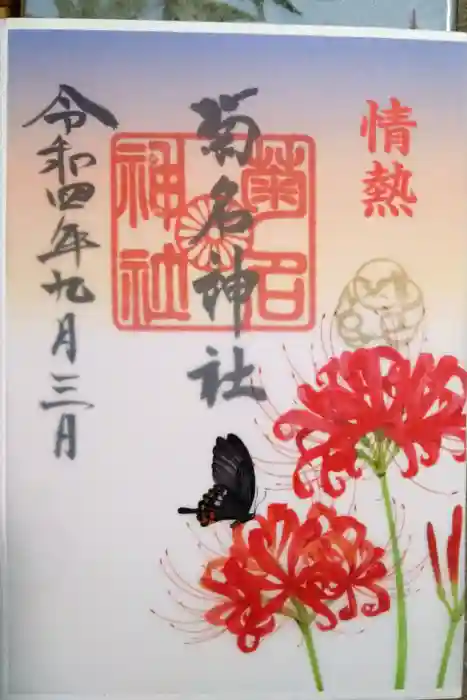 情熱
菊名神社
菊名
神社
令和四年九月三月